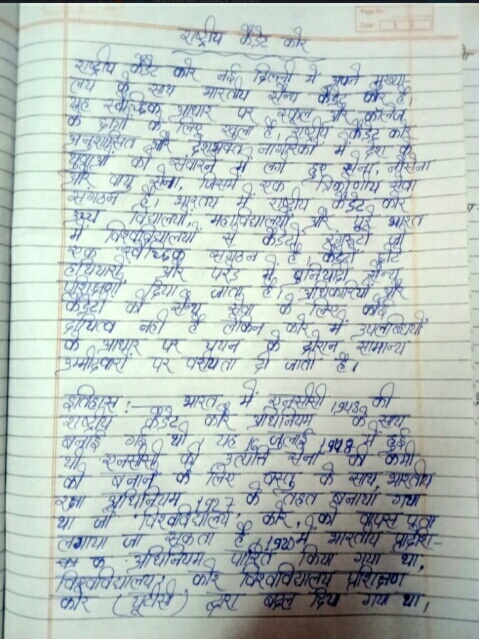 राष्ट्रीय कैडेट कोर
राष्ट्रीय कैडेट कोर नई दिल्ली में अपने मुख्या-
लय के साथ भारतीय सैन्य कैडेट कोर है।
यह स्वैच्छिक आधार पर स्कूल और कॉलेज
के छात्रों के लिए खुला है। राष्ट्रीय कैडेट कोर
अनुशासित और देशभक्त नागरिकों में देश के
युवाओं को संवारने में लगे हुए सेना, नौसेना
और वायु सेना, जिसमें एक त्रिकोणीय सेवा
संगठन है। भारतीय में राष्ट्रीय कैडेट कोर
उच्च विद्यालयों, महाविद्यालयों और पूरे भारत
में विश्वविद्यालयों से कैडेटों की
एक स्वैच्छिक संगठन है। कैडेटों छोटे
हथियारों और परेड में बुनियादी सैन्य
प्रशिक्षण दिया जाता है। अधिकारियों और
कैडेटों को सैन्य सेवा के लिए कोई
दायित्व नहीं है लेकिन कोर में उपलब्धियों
के आधार पर चयन के दौरान सामान्य
उम्मीदवारों पर वरीयता दी जाती है।
इतिहास :- भारत में एनसीसी 1948 की
राष्ट्रीय कैडेट कोर अधिनियम के साथ
बनाई गई थी, यह 16 जुलाई, 1948 में हुई
थी एनसीसी की उत्पत्ति सेना की कमी
को बनाने के लिए के साथ, भारतीय
रक्षा अधिनियम 1917 के तहत बनाया गया
था जो 'विश्वविद्यालय' कोर, को वापस पता
लगाया जा सकता है, 1920 में भारतीय प्रादेशि-
क अधिनियम पारित किया गया था,
'विश्वविद्यालय' कोर विश्वविद्यालय प्रशिक्षण
कोर (यूटीसी) द्वारा बदल दिया गया था,